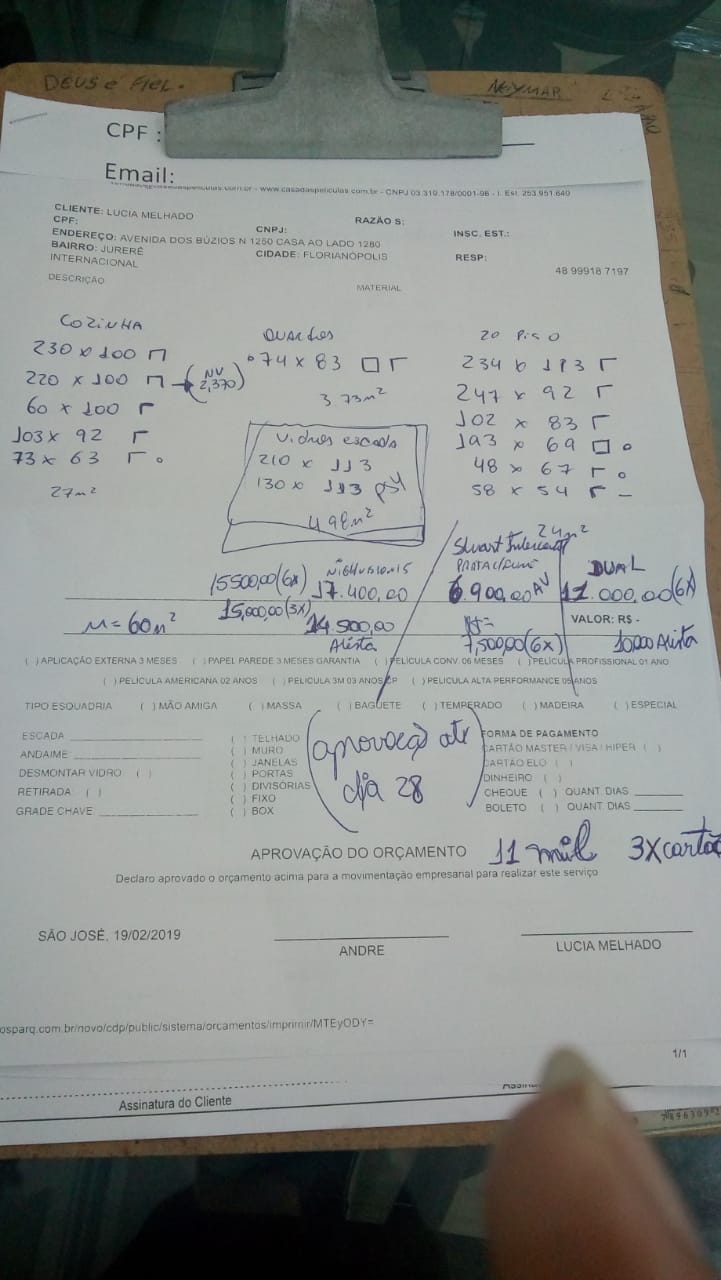 DEUS é FIEL.
NEYMAR
CPF :
Email:
www.casadaspeliculas.com.br - CNPJ 03.310.178/0001-96 - I. Est. 253.951.640
CLIENTE: LUCIA MELHADO RAZÃO S:
CPF: CNPJ: INSC. EST.:
ENDEREÇO: AVENIDA DOS BÚZIOS N 1250 CASA AO LADO 1280
BAIRRO: JURERÊ INTERNACIONAL CIDADE: FLORIANÓPOLIS RESP:
48 99918 7197
DESCRIÇÃO MATERIAL
COZINHA
230 x 100
220 x 100 (NV 2,370)
60 x 100
103 x 92
73 x 63
27m²
Quartos
74 x 83
3 73m²
Vidros escada
210 x 113
130 x 113
498m²
20 Piso
234 113
247 x 92
102 x 83
193 x 69
48 x 67
58 x 54
24m²
15500,00(6x) 17.400,00
15,000,00(3x) 14.500,00
Alista
M = 60m²
6.900,00 AV
7,500,00(6x)
DUAL
11.000,00(6x)
VALOR: R$ -
10,000 Alista
( ) APLICAÇÃO EXTERNA 3 MESES ( ) PAPEL PAREDE 3 MESES GARANTIA ( ) PELICULA CONV. 06 MESES ( ) PELÍCULA PROFISSIONAL 01 ANO
( ) PELÍCULA AMERICANA 02 ANOS ( ) PELICULA 3M 03 ANOS ( ) PELICULA ALTA PERFORMANCE 05 ANOS
TIPO ESQUADRIA ( ) MÃO AMIGA ( ) MASSA ( ) BAGUETE ( ) TEMPERADO ( ) MADEIRA ( ) ESPECIAL
ESCADA
ANDAIME
DESMONTAR VIDRO ( )
RETIRADA ( )
GRADE CHAVE:
( ) TELHADO
( ) MURO
( ) JANELAS
( ) PORTAS
( ) DIVISÓRIAS
( ) FIXO
( ) BOX
aprovação até
dia 28
FORMA DE PAGAMENTO
CARTÃO MASTER / VISA / HIPER ( )
CARTÃO ELO ( )
DINHEIRO ( )
CHEQUE ( ) QUANT. DIAS
BOLETO ( ) QUANT. DIAS
APROVAÇÃO DO ORÇAMENTO 11 mil 3x cartão
Declaro aprovado o orçamento acima para a movimentação empresarial para realizar este serviço
SÃO JOSÉ, 19/02/2019
ANDRE
LUCIA MELHADO
osparq.com.br/novo/cdp/public/sistema/orcamentos/imprimir/MTEyODY=
1/1
Assinatura do Cliente